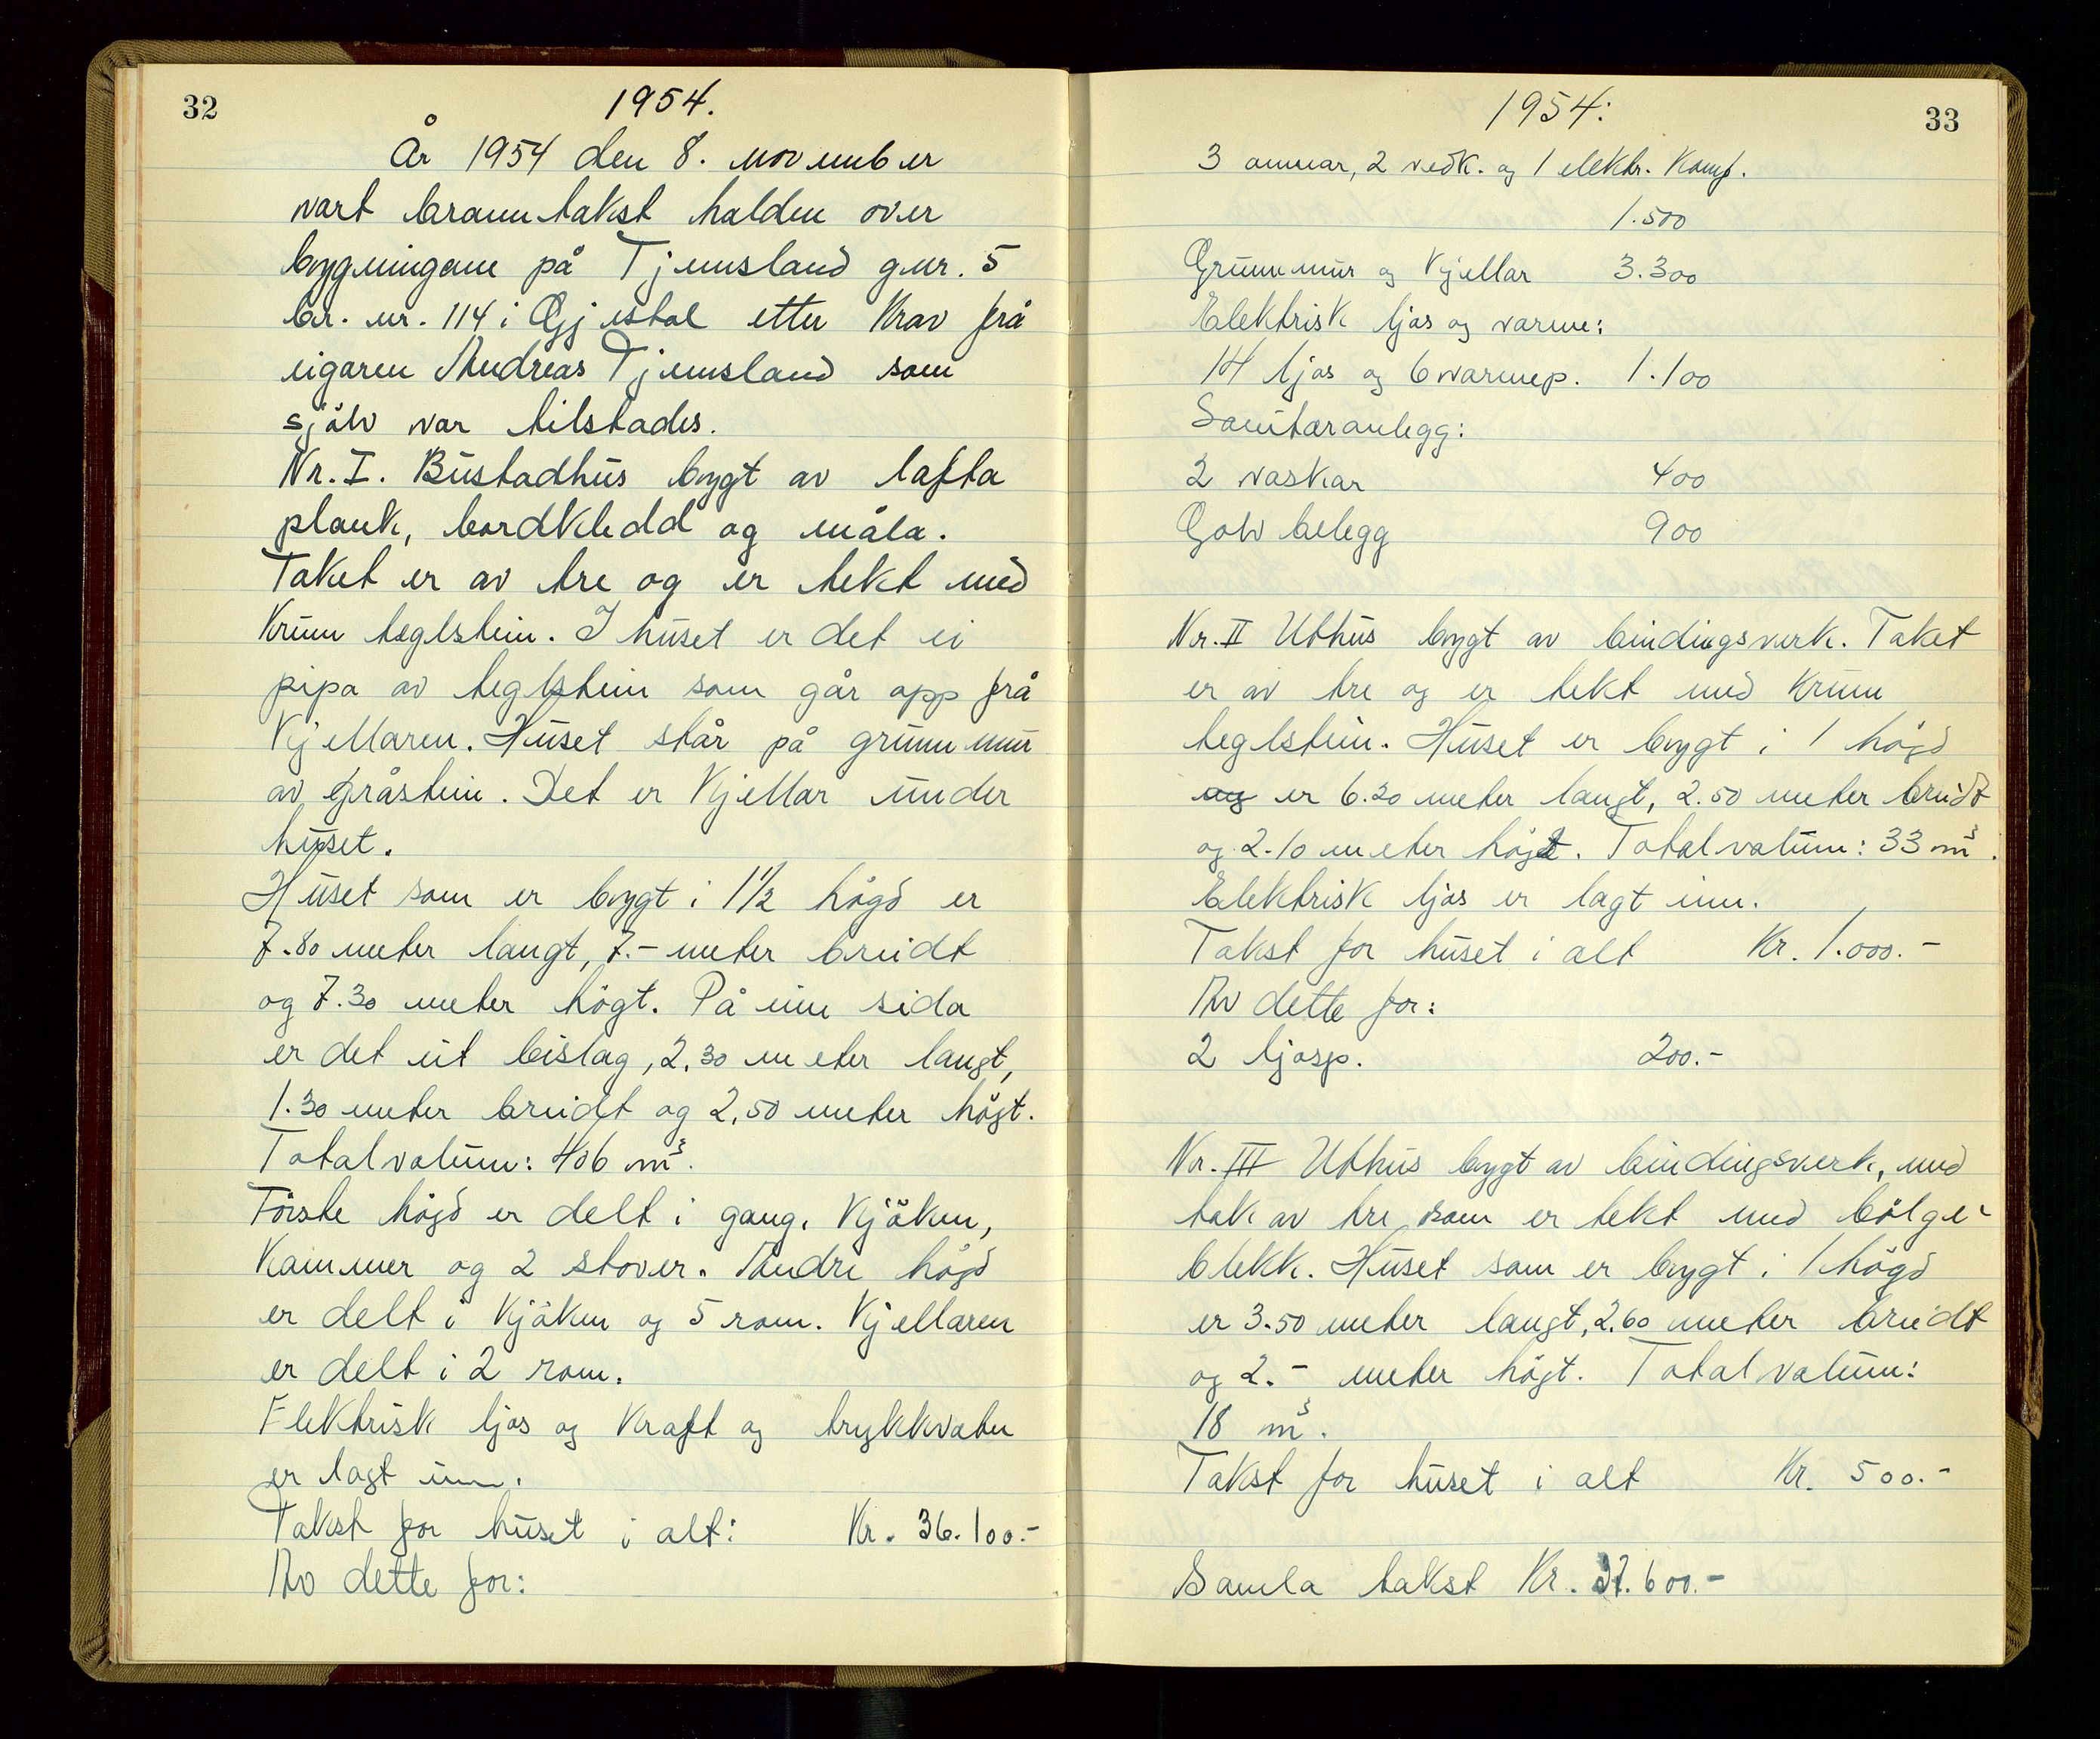 32
1954.
År 1954 den 8. november
vart branntakst halden over
bygningane på Tjemsland gnr. 5
br. nr. 114 i Gjestal etter krav frå
eigaren Andreas Tjemsland som
sjölv var tilstades.
Nr. I. Bustadhus bygt av lafta
plank, bordkledd og måla.
Taket er av tre og er tekt med
krum teglstein. I huset er det ei
pipa av teglstein som går opp frå
kjellaren. Huset står på grunnmur
av gråstein. Det er kjellar under
huset.
Huset som er bygt i 1 1/2 högd er
7.80 meter langt, 7.- meter breidt
og 7.30 meter högt. På eine sida
er det eit bislag, 2,30 meter langt,
1.30 meter breidt og 2,50 meter högt.
Totalvolum: 406 m³.
Förste högd er delt i gang, kjöken,
kammer og 2 stover. Andre högd
er delt i kjöken og 5 rom. Kjellaren
er delt i 2 rom.
Elektrisk ljos og kraft og trykkvatn
er lagt inn.
Takst for huset i alt: Kr. 36.100.-
Av dette for:
1954:
33
3 omnar, 2 vedk. og 1 elektr. komf.
1.500
Grunnmur og kjellar 3.300
Elektrisk ljos og varme:
14 ljos og 6 varmep. 1.100
Sanitæranlegg:
2 vaskar 400
Golvbelegg 900
Nr. II Uthus bygt av bindingsverk. Taket
er av tre og er tekt med krum
teglstein. Huset er bygt i 1 högd
og er 6.30 meter langt, 2.50 meter breidt
og 2.10 meter högt. Totalvolum: 33 m³.
Elektrisk ljos er lagt inn.
Takst for huset i alt Kr. 1.000.-
Av dette for:
2 ljosp. 200.-
Nr. III Uthus bygt av bindingsverk, med
tak av tre som er tekt med bölge-
blekk. Huset som er bygt i 1 högd
er 3.50 meter langt, 2.60 meter breidt
og 2.- meter högt. Totalvolum:
18 m³.
Takst for huset i alt Kr. 500.-
Samla takst Kr. 37.600.-